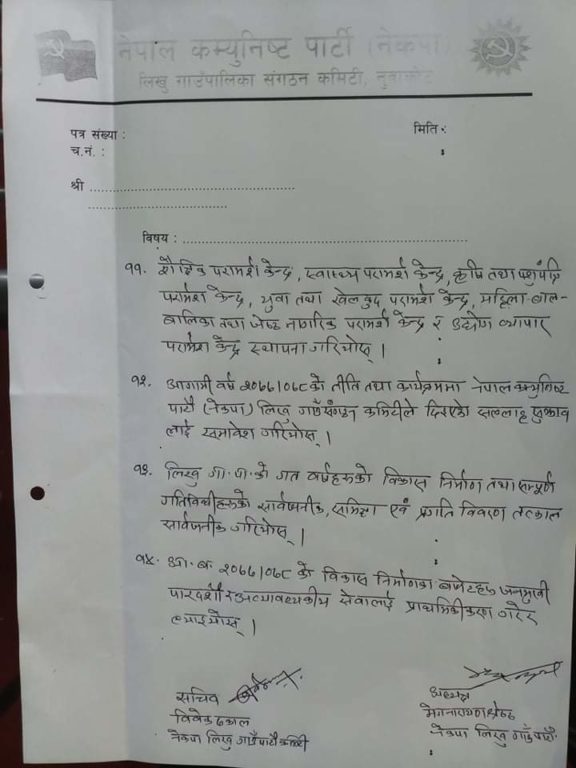 नेपाल कम्युनिष्ट पार्टी (नेकपा)
लिखु गाउँपालिका संगठन कमिटी, नुवाकोट
पत्र संख्या :
मिति :
च.नं. :
श्री ..................................................
..................................
विषय : ......................................................................
११. शैक्षिक परामर्श केन्द्र, स्वास्थ्य परामर्श केन्द्र, कृषि तथा पशुपंक्षि
परामर्श केन्द्र, युवा तथा खेलकुद परामर्श केन्द्र, महिला-बाल-
बालिका तथा जेष्ठ नागरिक परामर्श केन्द्र र उद्योग व्यापार
परामर्श केन्द्र स्थापना गरियोस् ।
१२. आगामी वर्ष २०७७/०७८ को नीति तथा कार्यक्रममा नेपाल कम्युनिष्ट
पार्टी (नेकपा) लिखु गाउँ संगठन कमिटीले दिएको सल्लाह सुझाव
लाई समावेश गरियोस् ।
१३. लिखु गा.पा.को गत वर्षहरुको विकास निर्माण तथा सम्पूर्ण
गतिविधीहरुको सार्वजनीक, समिक्षा एवं प्रगति विवरण तत्काल
सार्वजनीक गरियोस् ।
१४. आ.ब. २०७७/०७८ को विकास निर्माणका बजेटहरु जनमुखी
पारदर्शी र अत्यावश्यकीय सेवालाई प्राथमिकीकरण गरेर
ल्याइयोस् ।
सचिव
अध्यक्ष
विवेक ढकाल
मेघनारायण श्रेष्ठ
नेकपा लिखु गाउँपार्टी कमिटी
नेकपा लिखु गाउँ पार्टी